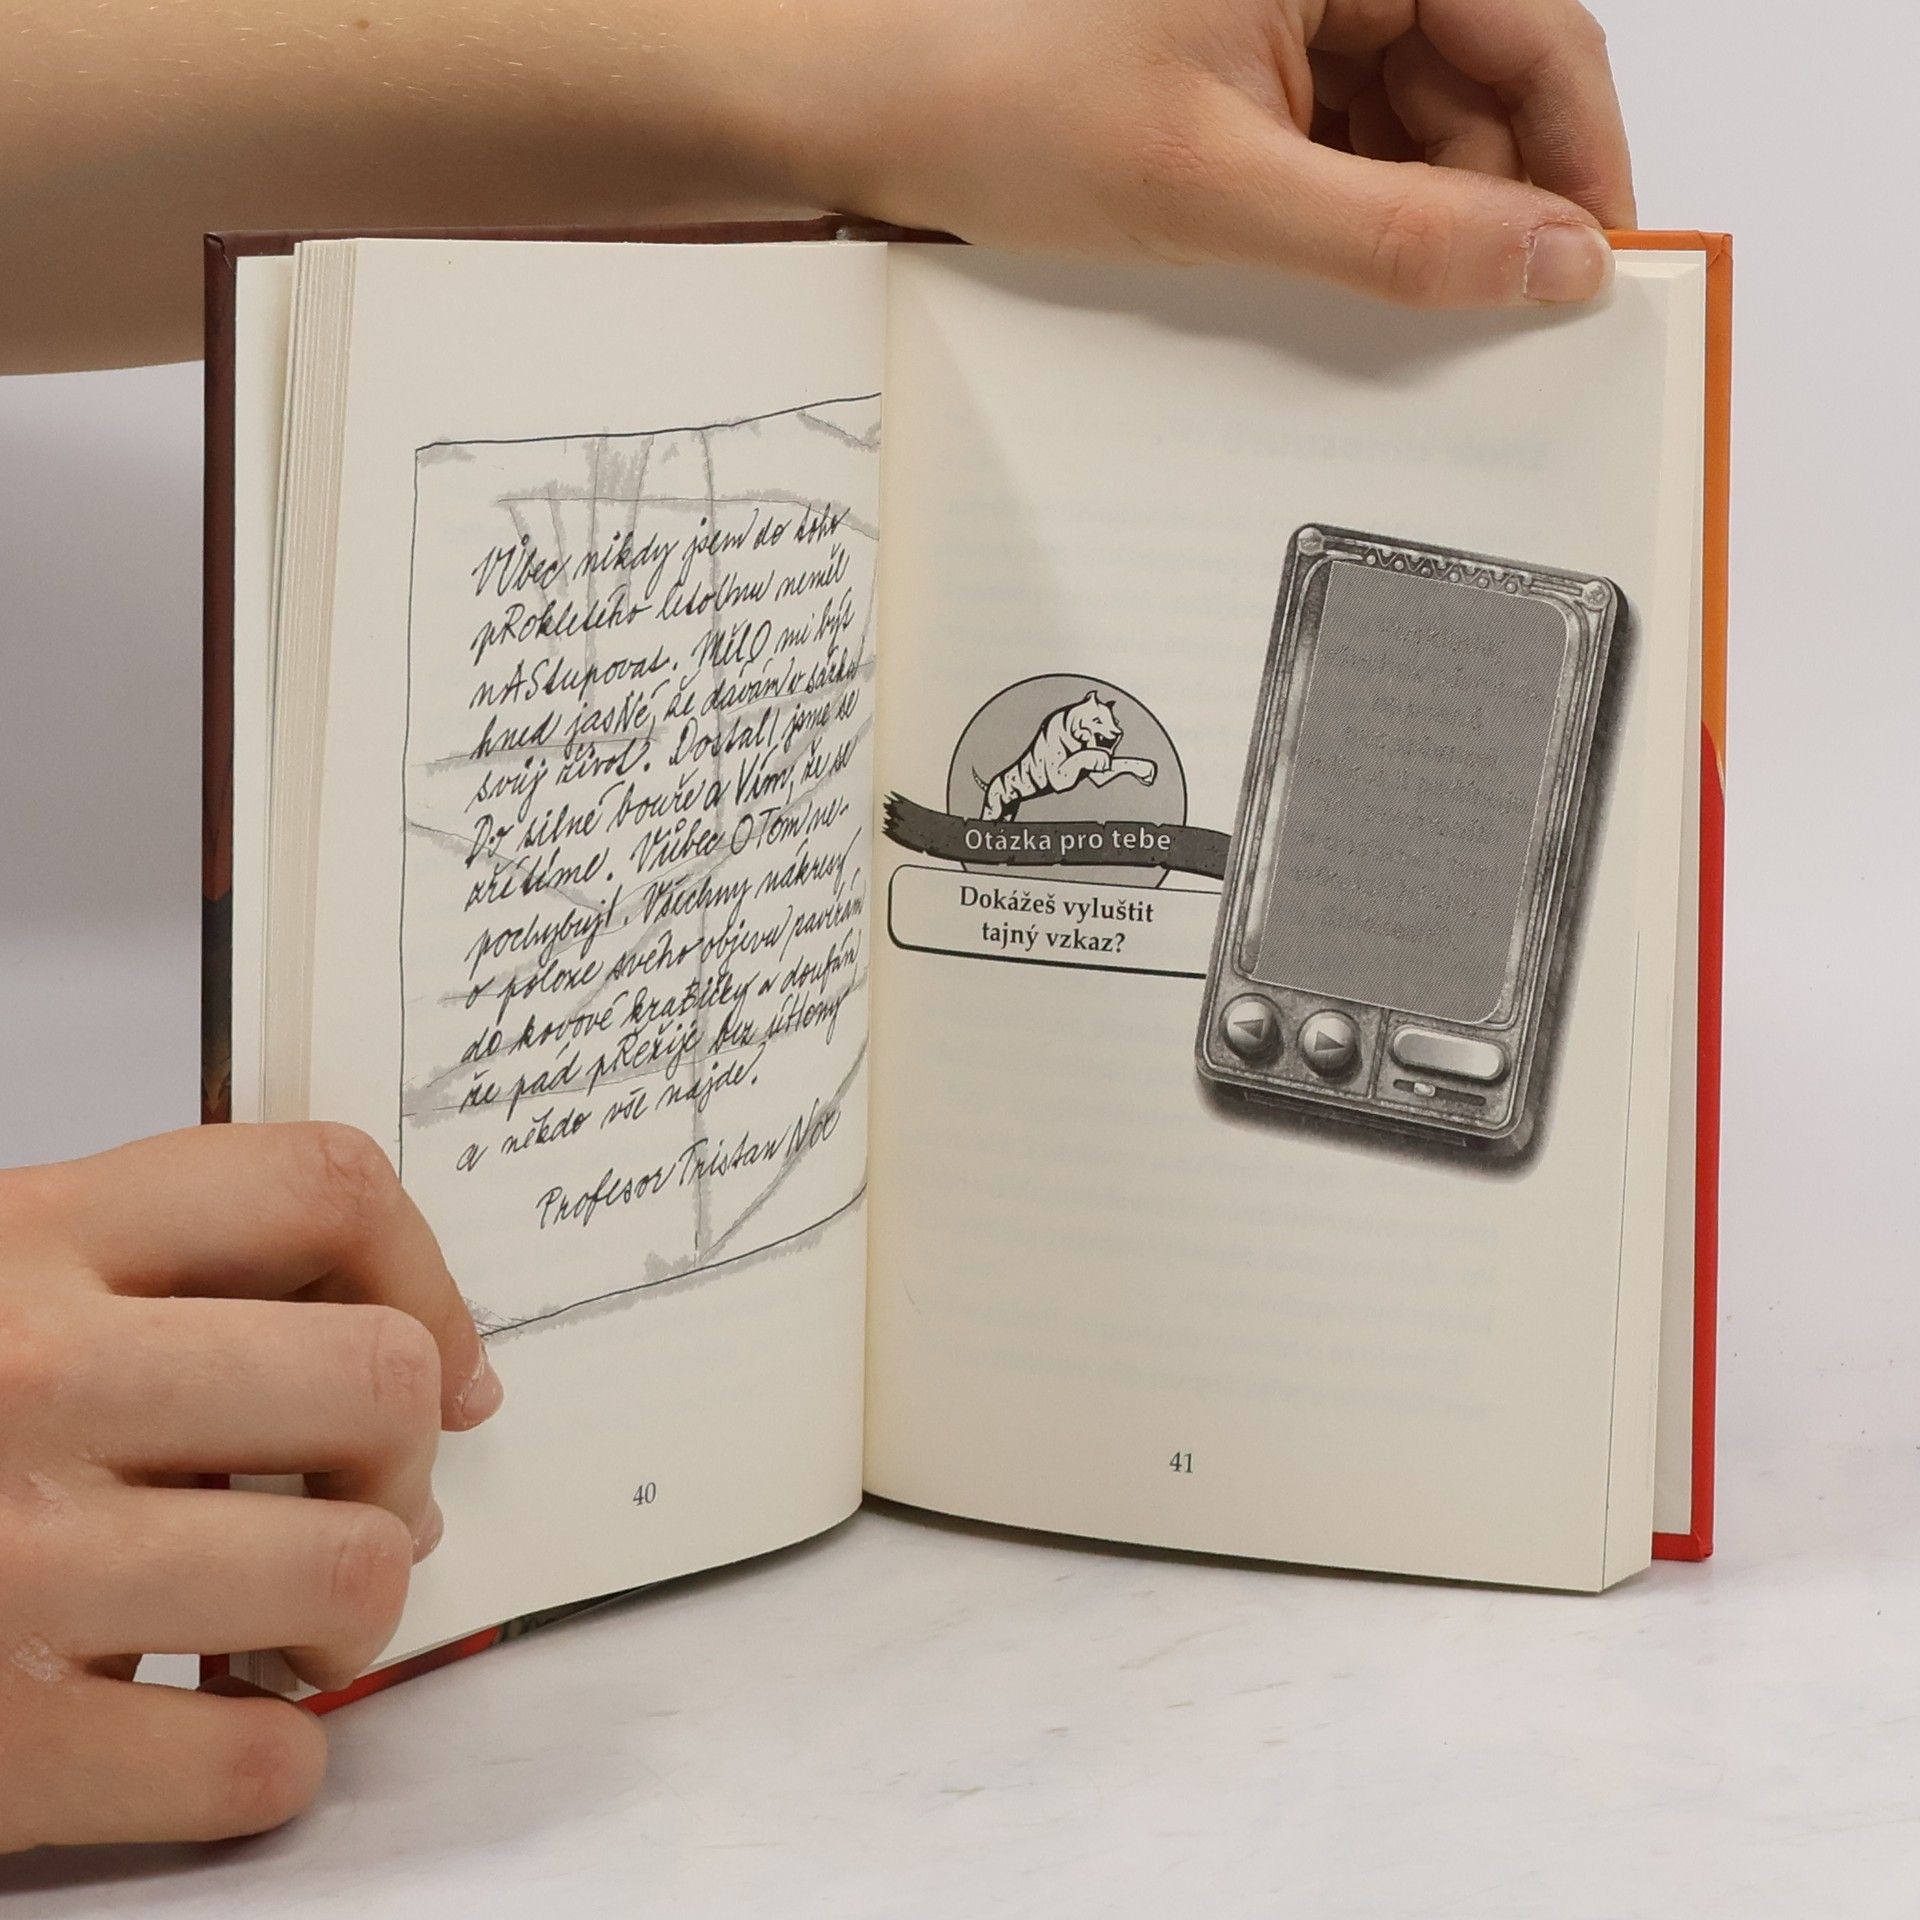 VŮbec nikdy jsem do toho
pRokletého letoUnu neměl
nAStupovat. MělO mi být
hned jasNé, že dávám v sázku
svůj život. Dostali jsme se
Do silné bouře a Vím, že se
zřítíme. Vůbec O Tom ne-
pochybujI. Všechny nákresy
o poloze svého objevu zavírám
do kovové kraBičky a doufám,
že pád pŘežije bez úHony
a někdo vše najde.
Profesor Tristan Nox
40
Otázka pro tebe
Dokážeš vyluštit
tajný vzkaz?
41